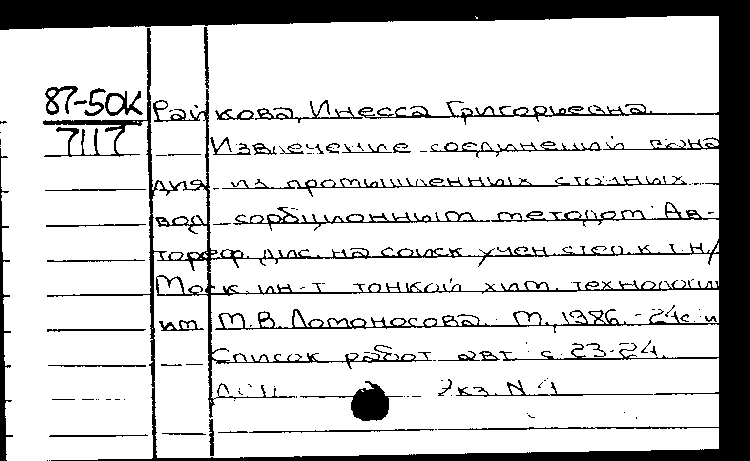 87-50К Райкова, Инесса Григорьевна.
7117 Извлечение соединений вана
дия из промышленных сточных
вод сорбционным методом: Ав-
тореф. дис. на соиск. учен. степ. к.т.н/
Моск. ин-т тонкой хим. технологии
им. М.В. Ломоносова. М., 1986. - 24с
Список работ авт.: с. 23-24.
ДСП Экз. N 1